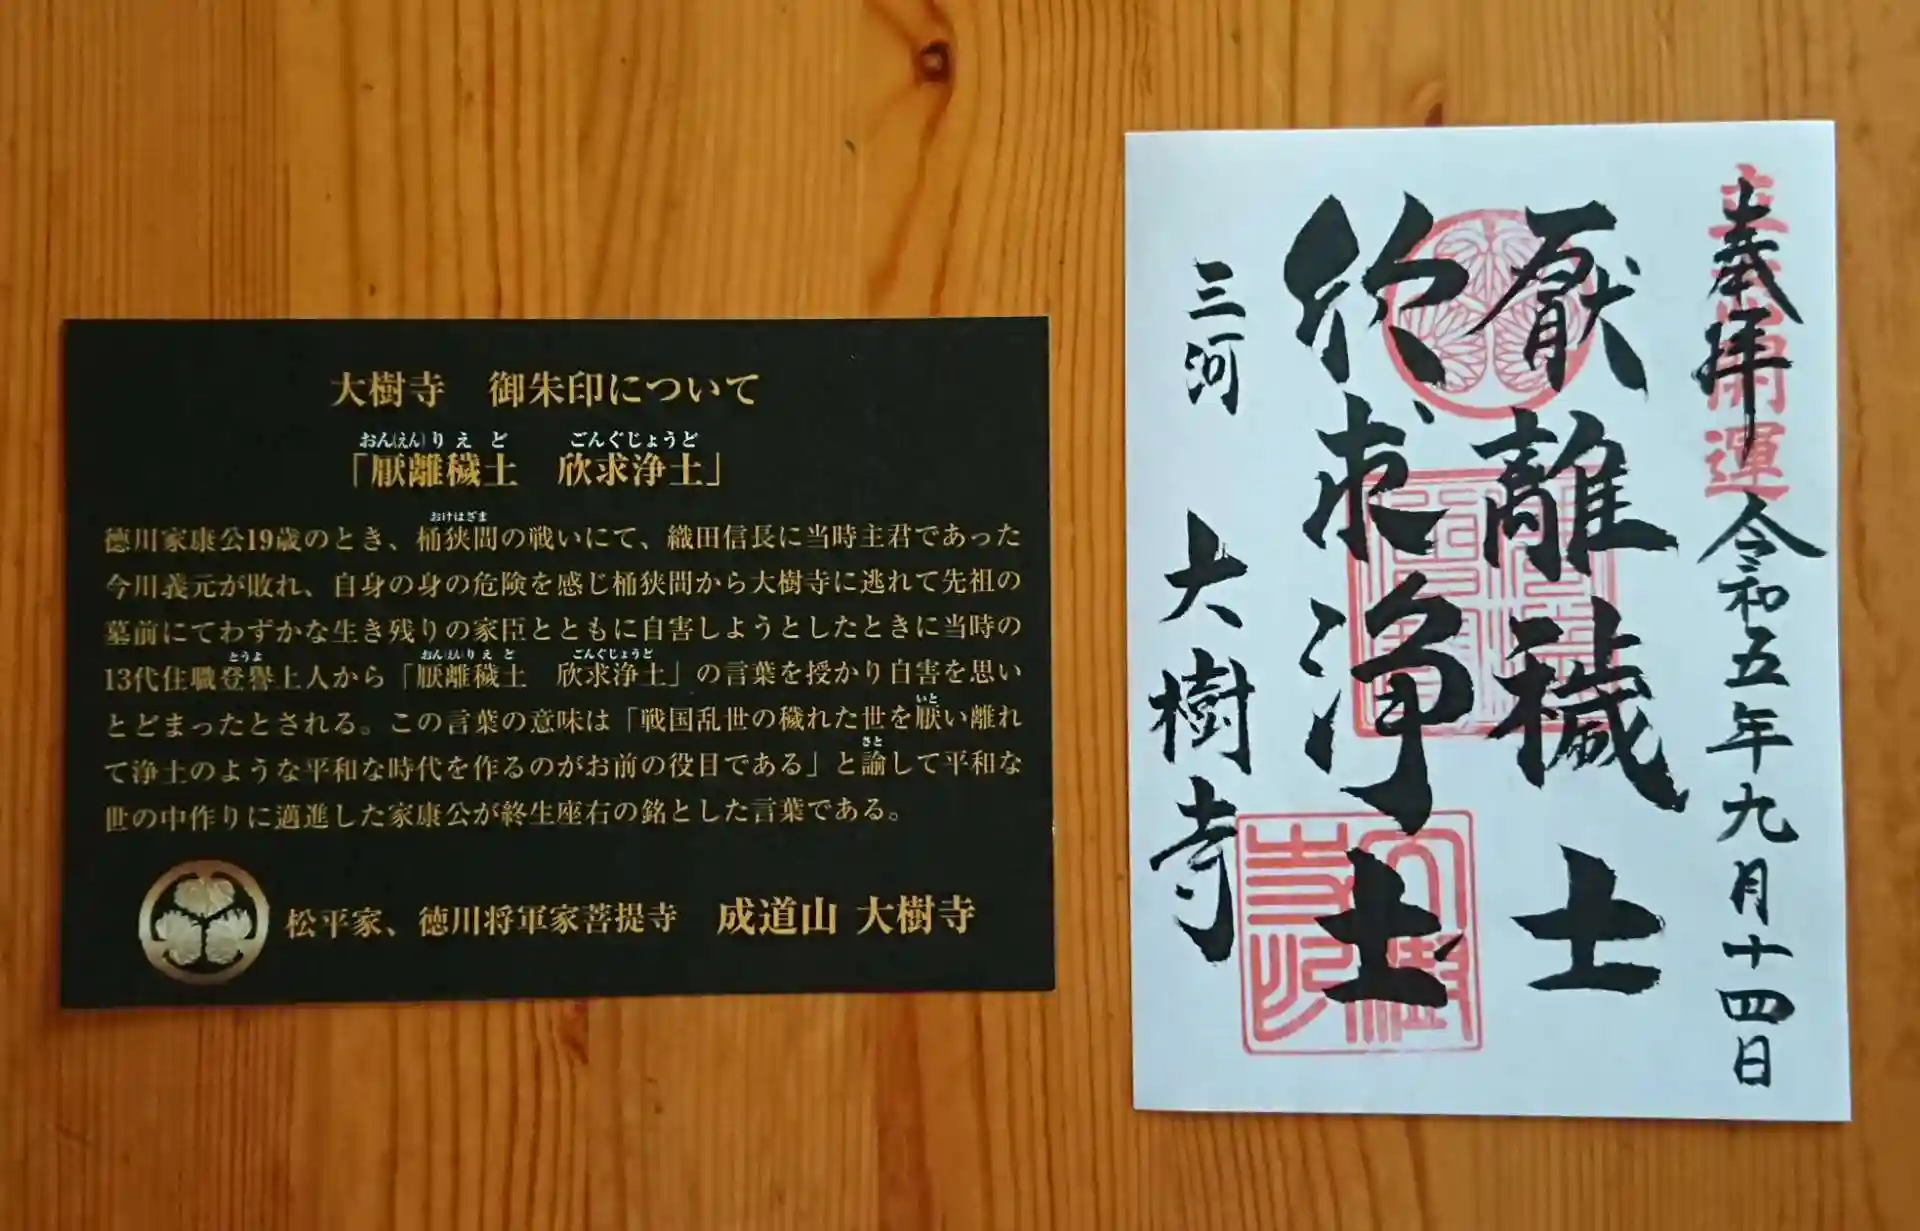 大樹寺　御朱印について
おん(えん)りえど　ごんぐじょうど
「厭離穢土　欣求浄土」
おけはざま
徳川家康公19歳のとき、桶狭間の戦いにて、織田信長に当時主君であった
今川義元が敗れ、自身の身の危険を感じ桶狭間から大樹寺に逃れて先祖の
墓前にてわずかな生き残りの家臣とともに自害しようとしたときに当時の
とうよ　おん(えん)りえど　ごんぐじょうど
13代住職登譽上人から「厭離穢土　欣求浄土」の言葉を授かり自害を思い
いと
とどまったとされる。この言葉の意味は「戦国乱世の穢れた世を厭い離れ
さと
て浄土のような平和な時代を作るのがお前の役目である」と諭して平和な
世の中作りに邁進した家康公が終生座右の銘とした言葉である。
松平家、徳川将軍家菩提寺　成道山 大樹寺
奉拝
開運
令和五年九月十四日
厭離穢土
欣求浄土
三河　大樹寺